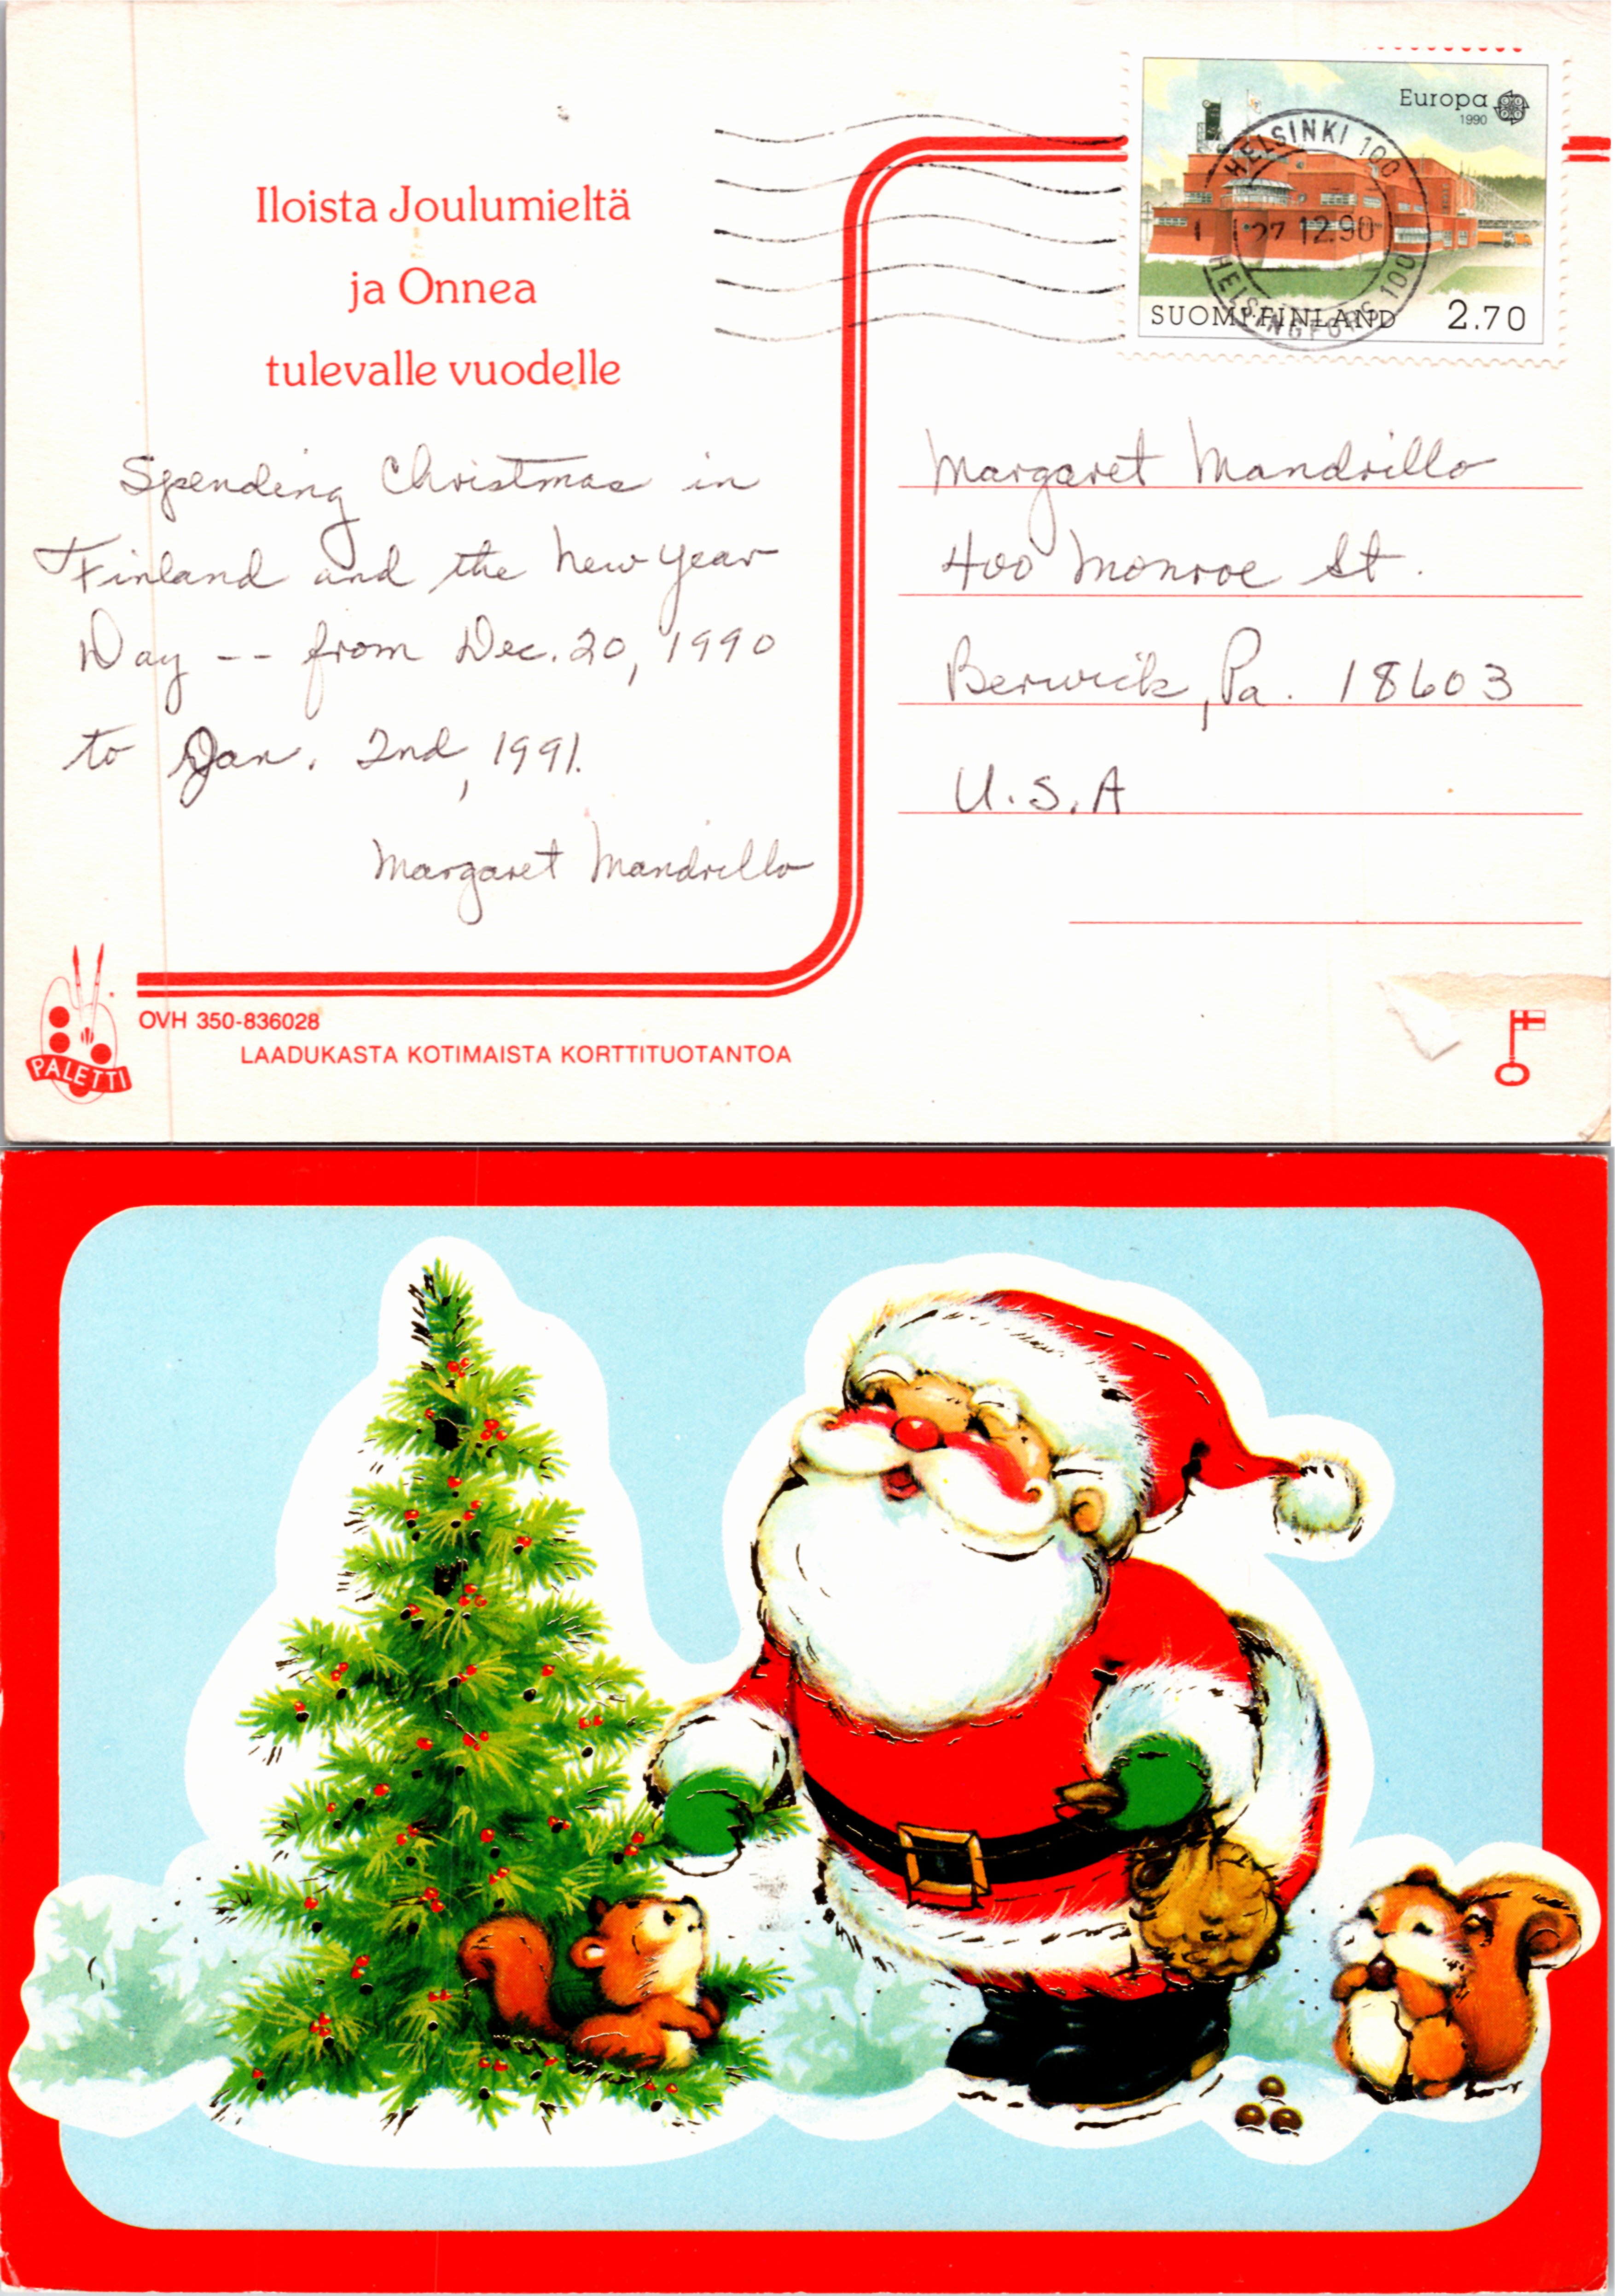 Iloista Joulumieltä
ja Onnea
tulevalle vuodelle
Spending Christmas in
Finland and the New Year
Day -- from Dec. 20, 1990
to Jan. 2nd, 1991.
Margaret Mandrillo
Europa
1990
HELSINKI 100
27 12.90
HELSINGFORS 100
SUOMI-FINLAND 2.70
Margaret Mandrillo
400 Monroe St.
Berwick, Pa. 18603
U.S.A
PALETTI
OVH 350-836028
LAADUKASTA KOTIMAISTA KORTTITUOTANTOA